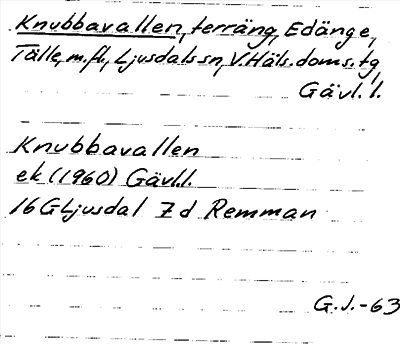 Knubbavallen, terräng, Edänge,
Tälle, m.fl., Ljusdals sn, V.Häls. doms. tg
Gävl. l.
Knubbavallen
ek (1960) Gävl.l.
16G Ljusdal 7d Remman
G.J.-63